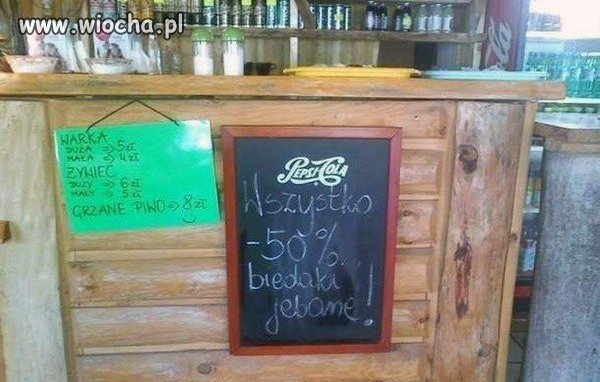 www.wiocha.pl
WARKA
DUŻA => 5 zł
MAŁA => 4 zł
ŻYWIEC
DUŻY => 6 zł
MAŁY => 5 zł
GRZANE PIWO => 8 zł
PEPSI-COLA
Wszystko
-50%
biedaki
jebane!